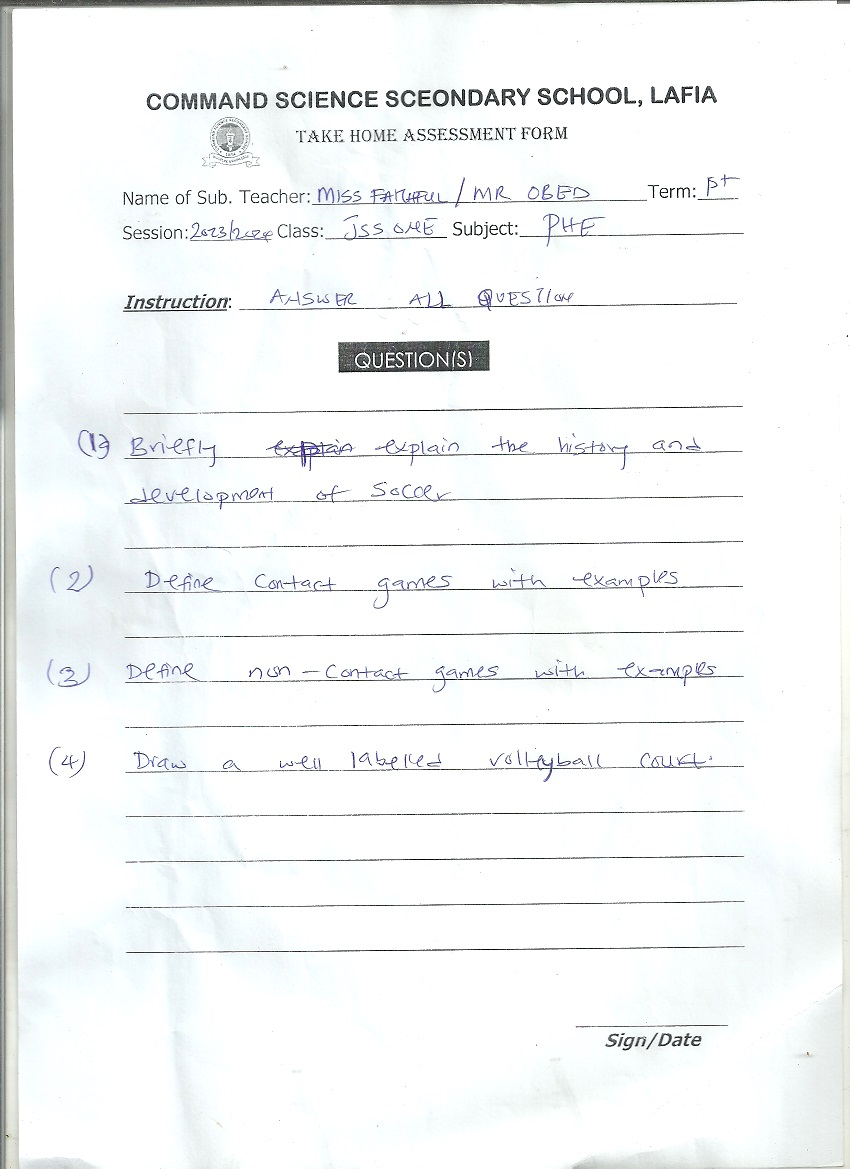 COMMAND SCIENCE SCEONDARY SCHOOL, LAFIA
TAKE HOME ASSESSMENT FORM
Name of Sub. Teacher: MISS FAITHFUL / MR OBED Term: 1st
Session: 2023/2024 Class: JSS ONE Subject: PHE
Instruction: ANSWER ALL QUESTION
QUESTION(S)
(1) Briefly explain explain the history and
development of Soccer
(2) Define Contact games with examples
(3) Define non-Contact games with examples
(4) Draw a well labelled volleyball court.
Sign/Date